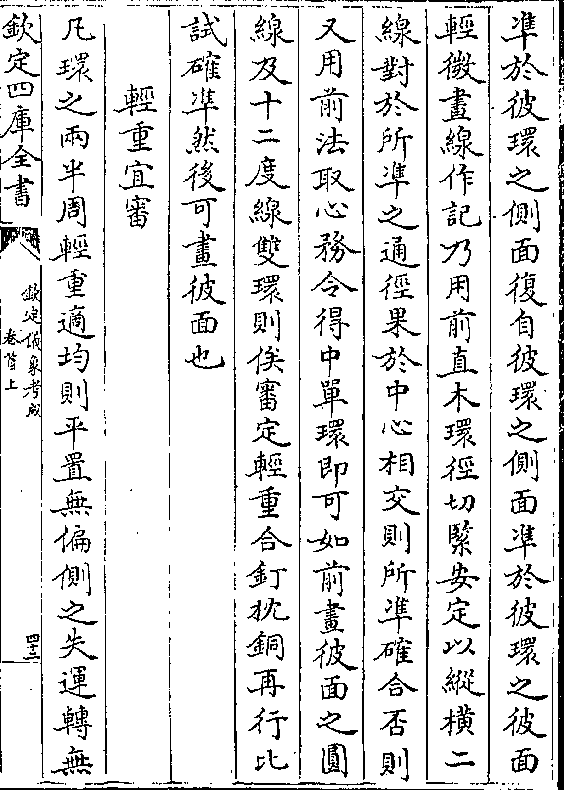 準於彼環之側面復自彼環之側面準於彼環之彼面
輕微畫線作記乃用前直木環徑切緊安定以縱橫二
線對於所準之通徑果於中心相交則所準確合否則
又用前法取心務令得中單環即可如前畫彼面之圓
線及十二度線雙環則俟審定輕重合釘枕銅再行比
試確準然後可畫彼面也
輕重宜審
凡環之兩半周輕重適均則平置無偏側之失運轉無
欽定四庫全書
欽定儀象考成
卷首上
四十三